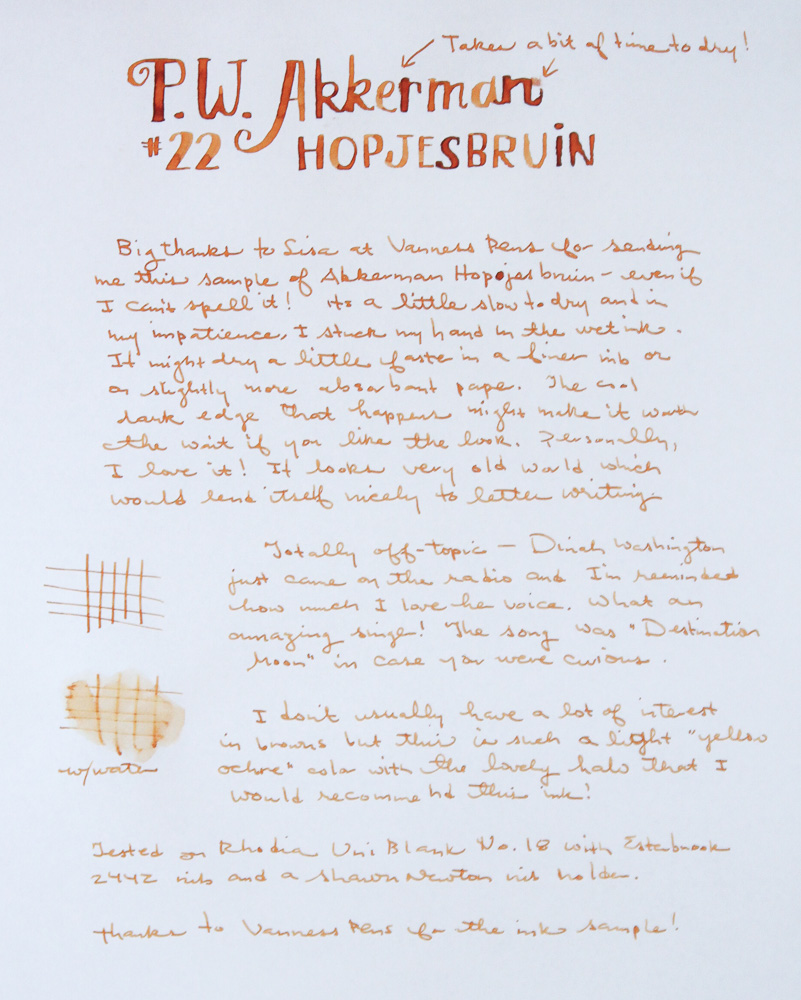 Takes a bit of time to dry!
P.W. Akkerman
#22 HOPJESBRUIN
Big thanks to Lisa at Vanness Pens for sending
me this sample of Akkerman Hopojesbruin - even if
I can't spell it! its a little slow to dry and in
my impatience, I stuck my hand in the wet ink.
It might dry a little faster in a finer nib or
on slightly more absorbant paper. The cool
dark edge that happens might make it worth
the wait if you like the look. Personally,
I love it! It looks very old world which
would lend itself nicely to letter writing.
Totally off-topic - Dinah Washington
just came on the radio and I'm reminded
how much I love her voice. What an
amazing singer! The song was "Destination
Moon" in case you were curious.
I don't usually have a lot of interest
in browns but this is such a light "yellow
ochre" color with the lovely halo that I
would recommend this ink!
w/water
Tested on Rhodia Uni Blank No. 18 with Esterbrook
2442 nib and a Shawn Newton nib holder.
Thanks to Vanness Pens for the ink sample!